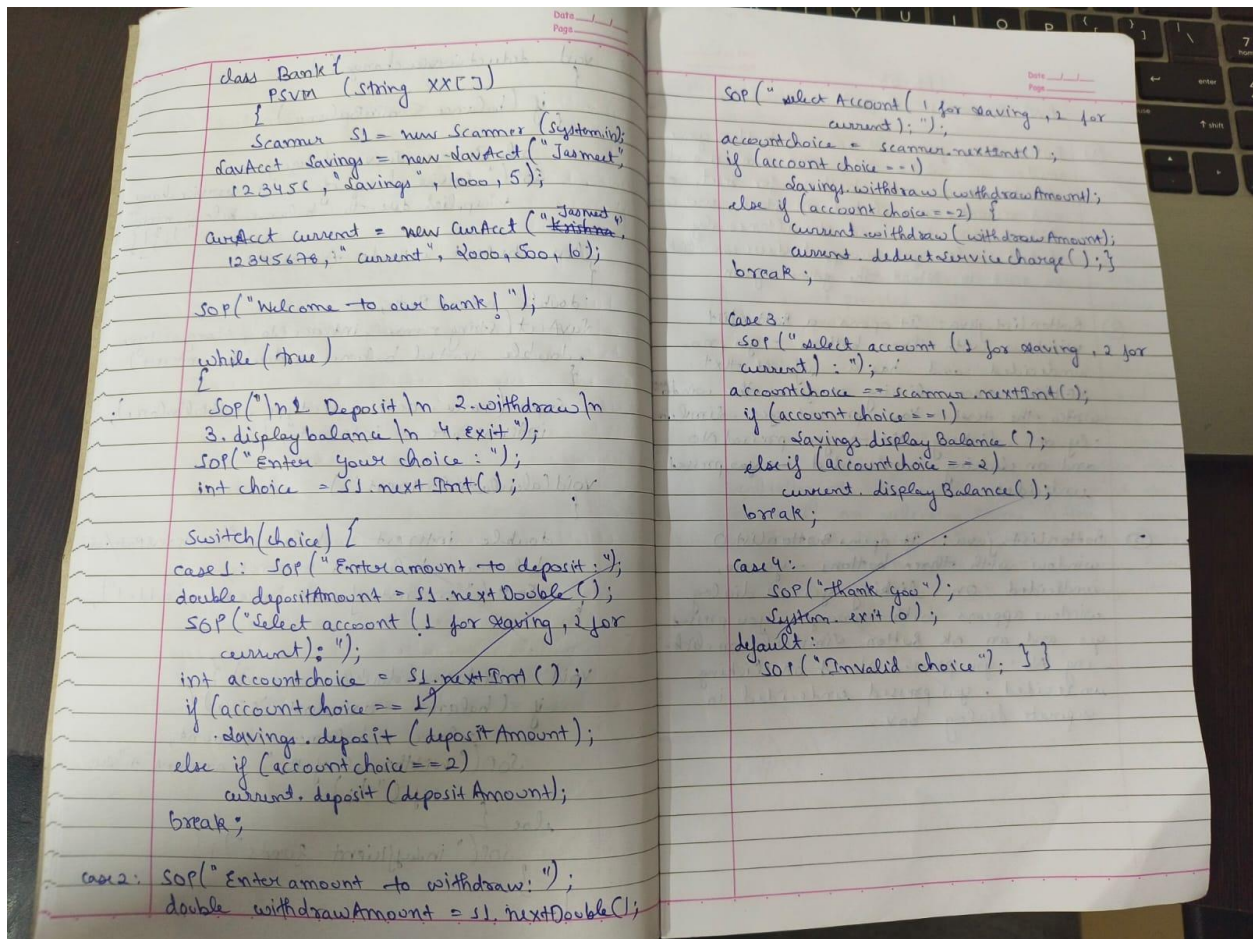 Date
Page
class Bank {
PSVM (String XX[])
{
Scanner S1 = new Scanner (System.in);
SavAcct Savings = new SavAcct ("Jasmeet",
123456, "Savings", 1000, 5);
Jasmeet
CurAcct current = new CurAcct ("Krishna",
12345678, "current", 2000, 500, 10);
SOP("Welcome to our bank!");
while (true)
{
SOP("\n1 Deposit \n 2.withdraw \n
3. display balance \n 4. Exit");
SOP("Enter your choice : ");
int choice = S1.next Int();
Switch(choice) {
case 1: SOP("Enter amount to deposit :");
double depositAmount = S1.next Double ();
SOP("Select account (1 for saving, 2 for
current): ");
int accountchoice = S1.next Int ();
if (accountchoice == 1)
Savings.deposit (deposit Amount);
else if (accountchoice == 2)
current. deposit (deposit Amount);
break;
case 2: SOP("Enter amount to withdraw: ");
double withdrawAmount = S1. nextDouble();
Date
Page
SOP(" select Account (1 for saving, 2 for
current): ");
accountchoice = scanner.nextInt();
if (account choice == 1)
Savings.withdraw (withdrawAmount);
else if (account choice == 2) {
current.withdraw (withdrawAmount);
current. deductservice charge(); }
break;
Case 3:
SOP ("select account (1 for saving, 2 for
current) : ");
accountchoice == scanner.nextInt();
if (accountchoice == 1)
Savings.display Balance ();
else if (accountchoice == 2)
current. display Balance();
break;
Case 4:
SOP ("thank you");
System. exit (0);
default :
SOP("Invalid choice"); } }
Y U I O P
enter
shift
7
home